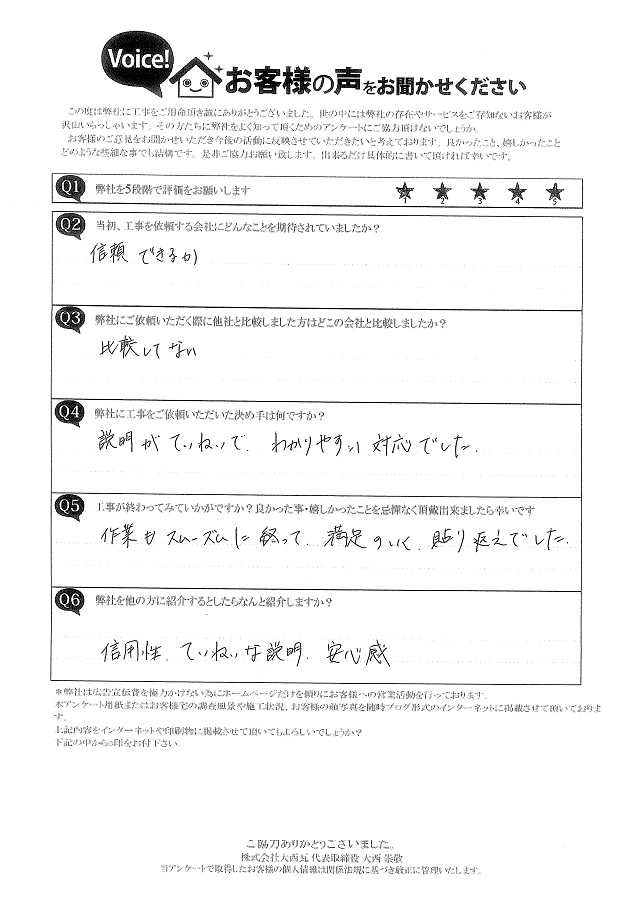 Voice!
お客様の声をお聞かせください
この度は弊社に工事をご用命頂き誠にありがとうございました。世の中には弊社の存在やサービスをご存知ないお客様が
沢山いらっしゃいます。その方たちに弊社をよく知って頂くためのアンケートにご協力頂けないでしょうか。
お客様のご意見をお聞かせいただき今後の活動に反映させていただきたいと考えております。良かったこと、嬉しかったこと
どのような些細な事でも結構です。是非ご協力お願い致します。出来るだけ具体的に書いて頂ければ幸いです。
Q1 弊社を5段階で評価をお願いします
1 2 3 4 5
Q2 当初、工事を依頼する会社にどんなことを期待されていましたか？
信頼できるか
Q3 弊社にご依頼いただく際に他社と比較しました方はどこの会社と比較しましたか？
比較してない
Q4 弊社に工事をご依頼いただいた決め手は何ですか？
説明がていねいで、わかりやすい対応でした。
Q5 工事が終わってみていかがですか？良かった事・嬉しかったことを忌憚なく頂戴出来ましたら幸いです
作業もスムーズムに終って、満足のいく、貼り返えでした。
Q6 弊社を他の方に紹介するとしたらなんと紹介しますか？
信用性、ていねいな説明、安心感
＊弊社は広告宣伝費を極力かけない為にホームページだけを頼りにお客様への営業活動を行っております。
本アンケート用紙またはお客様宅の調査風景や施工状況、お客様の顔写真を随時ブログ形式のインターネットに掲載させて頂いておりま
す。
上記内容をインターネットや印刷物に掲載させて頂いてもよろしいでしょうか？
下記の中から○印をお付下さい。
ご協力ありがとうございました。
株式会社大西瓦 代表取締役 大西 崇敬
当アンケートで取得したお客様の個人情報は関係法規に基づき厳正に管理いたします。